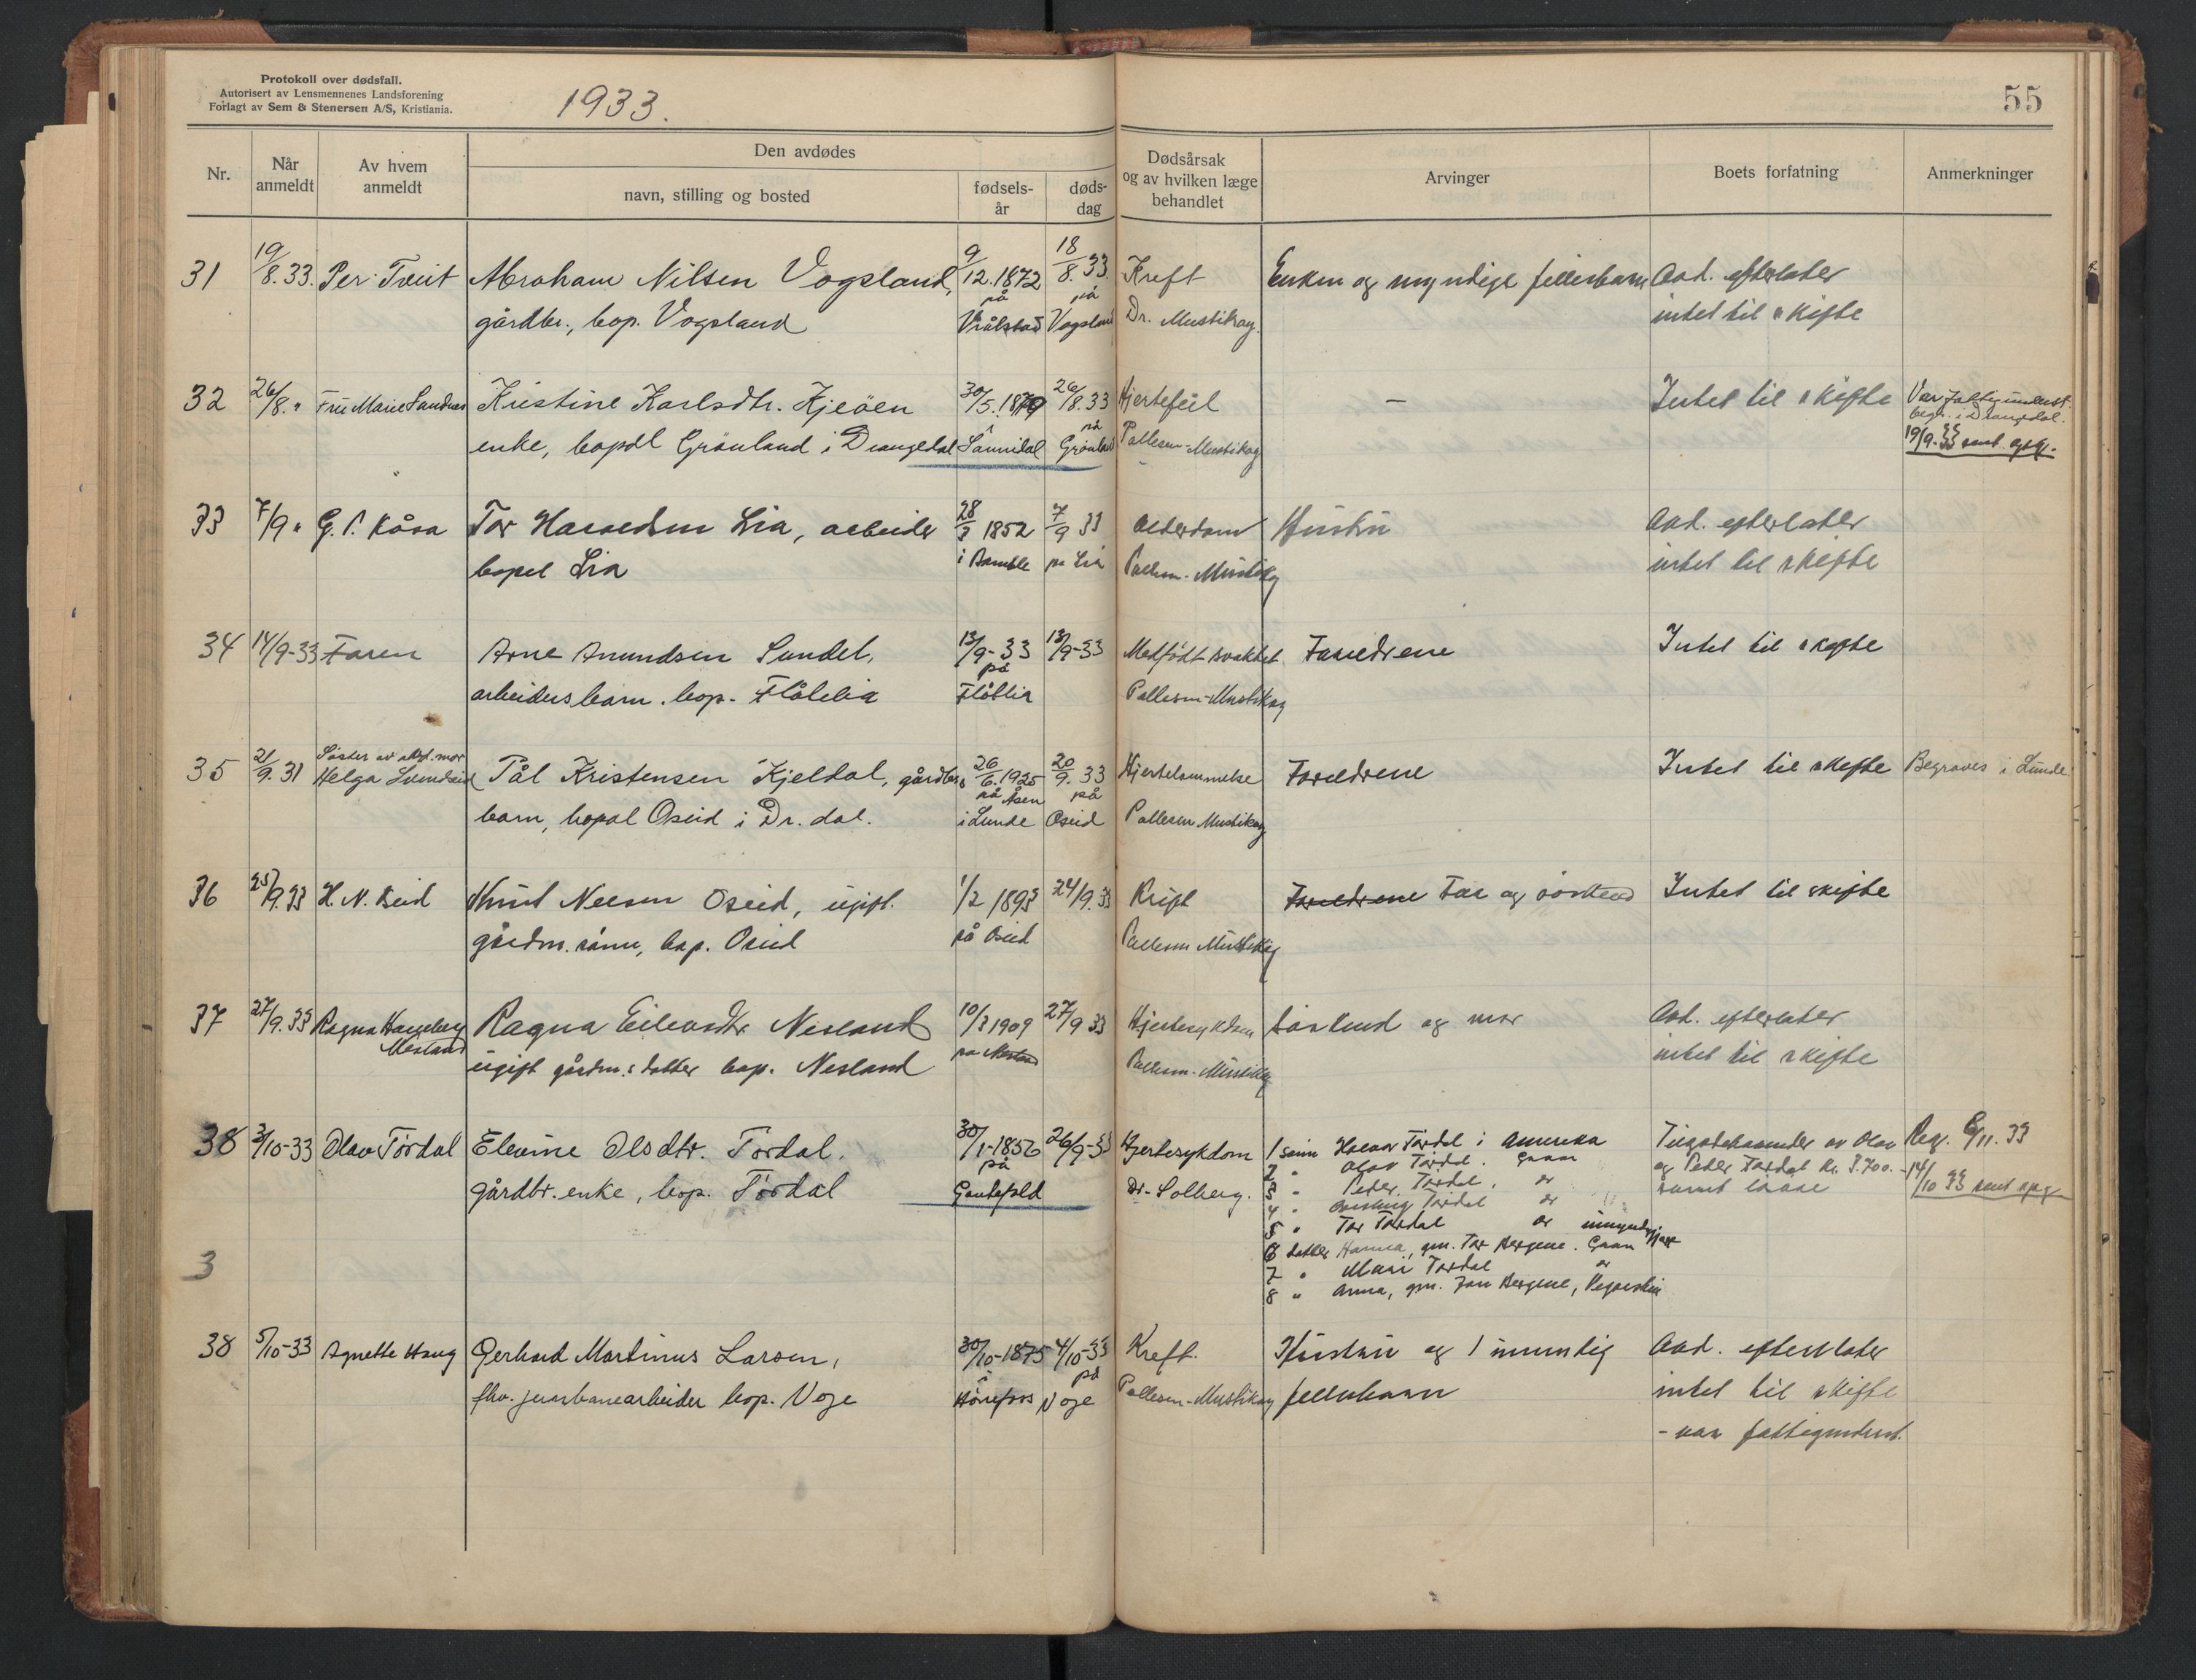 Protokoll over dødsfall.
Autorisert av Lensmennenes Landsforening
Forlagt av Sem & Stenersen A/S, Kristiania.
1933.
55
Nr.
Når anmeldt
Av hvem anmeldt
Den avdødes
navn, stilling og bosted
fødsels-år
døds-dag
Dødsårsak og av hvilken læge behandlet
Arvinger
Boets forfatning
Anmerkninger
31 19/8.33. Per Tveit Abraham Nilsen Vogsland, 9/12.1872 18/8.33. Kreft Enken og myndige fellesbarn Avd. efterlater
gårdbr., bop. Vogsland på Vrålstad på Vogsland Dr. Mustikay. intet til skifte
32 26/8. " Fru Marie Sandnes Kristine Karlsdtr. Kjeøen 30/5.1879 26/8.33 Hjertefeil — Intet til skifte Var fattigunderst.
begr. i Drangedal.
enke, bopdl Grönland i Drangedal i Sannidal på Grönland Pallesen-Mustikay 19/9-33 sent opg.
33 7/9 " G. P. Kåsa Tor Halvorsen Lia, arbeider 28/3 1852 7/9 33 Alderdom Hustru Avd. efterlater
bopel Lia i Bamble på Lia Pallesen-Mustikay intet til skifte
34 14/9-33 Faren Arne Amundsen Sundet, 13/9-33 13/9-33 Medfödt svakhet Foreldrene Intet til skifte
arbeidersbarn. bop. Flåtelia på Flåtlia Pallesen-Mustikay
35 21/9.31 Söster av avd. mor
Helga Pål Kristensen Kjeldal, gårdbr.s 26/6.1925 20/9.33 Hjertelammelse Foreldrene Intet til skifte Begraves i Lunde
barn, bopal Oseid i Dr.dal. på Åsen i Lunde på Oseid Pallesen Mustikay
36 25/9.33 H. N. Oseid Knut Nilsen Oseid, ugift. 1/2 1893 24/9.33 Kreft Foreldrene Far og söskend Intet til skifte
gårdm. sönn, bop. Oseid på Oseid Pallesen Mustikay
37 27/9.33 Ragna Haugeberg Nesland Ragna Eilevsdtr Nesland 10/3 1909 27/9 33 Hjertesykdom Söskend og mor Avd. efterlater
ugift gårdm.s datter bop. Nesland på Nesland Pallesen-Mustikay intet til skifte
38 3/10-33 Olav Tördal Elevine Olsdtr. Tördal. 30/1-1856 26/9-33 Hjertesykdom 1 sönn Halvor Tördal i Amerika av Olav Reg. 8/11.33
gårdbr. enke, bop. Tördal på Gautefald Dr. Solberg. 2 " Olav Tördal. og Peder Tördal kr. 3.700.- 14/10 33 sent opg.
3 " Peder Tördal. samt löse
4 " Tördal
5 " Tor Tördal
6 datter Hanna, gm. Tor Bergene.
7 " Mari Tördal
8 " Anna, gm. Jon Bergene, Vegårshei
3
38 5/10-33 Agnethe Haug Gerhard Martinus Larsen, 30/10-1875 4/10-33 Kreft. Hustru og 1 umyndig Avd. efterlater
fhv. jernbanearbeider bop. Voje i Hönefoss på Voje Pallesen-Mustikay fellesbarn intet til skifte
- var fattigunderst.